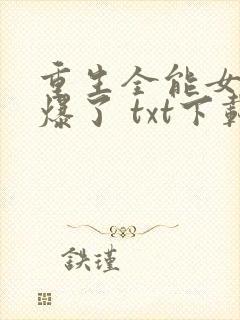 重生全能女
爆了 txt下載
鉄瑾